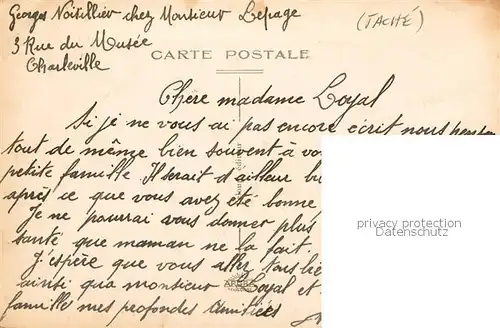 Georges Noitillier chez Monsieur Lepage
(TACHÉ)
3 Rue du Musée
Charleville
CARTE POSTALE
Chère madame Loyal
Si je ne vous ai pas encore écrit nous
tout de même bien souvent à
petite famille. Il serait d'ailleur
après ce que vous avez été bonne
Je ne pourrai vous donner plus
santé que maman ne la fait.
J'espère que vous allez tous
ainsi qu'a monsieur Loyal et
famille mes profondes Amitiées
privacy protection
Datenschutz